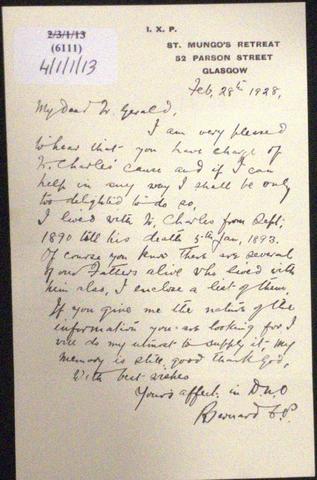 2/3/1/13
(6111)
4/1/1/13
I. X. P.
ST. MUNGO'S RETREAT
52 PARSON STREET
GLASGOW
Feb, 28th 1928,
My Dear Fr. Gerald,
I am very pleased
to hear that you have charge of
Fr. Charles' cause and if I can
help in any way I shall be only
too delighted to do so,
I lived with Fr. Charles from Sept:
1890 till his death 5th Jan, 1893.
Of course you know there are several
of our Fathers alive who lived with
him also, I enclose a list of them.
If you give me the nature of the
information you are looking for I
will do my utmost to supply it; my
memory is still good thank God,
With best wishes
Yours affect. in D.N.O
Bernard C.P.